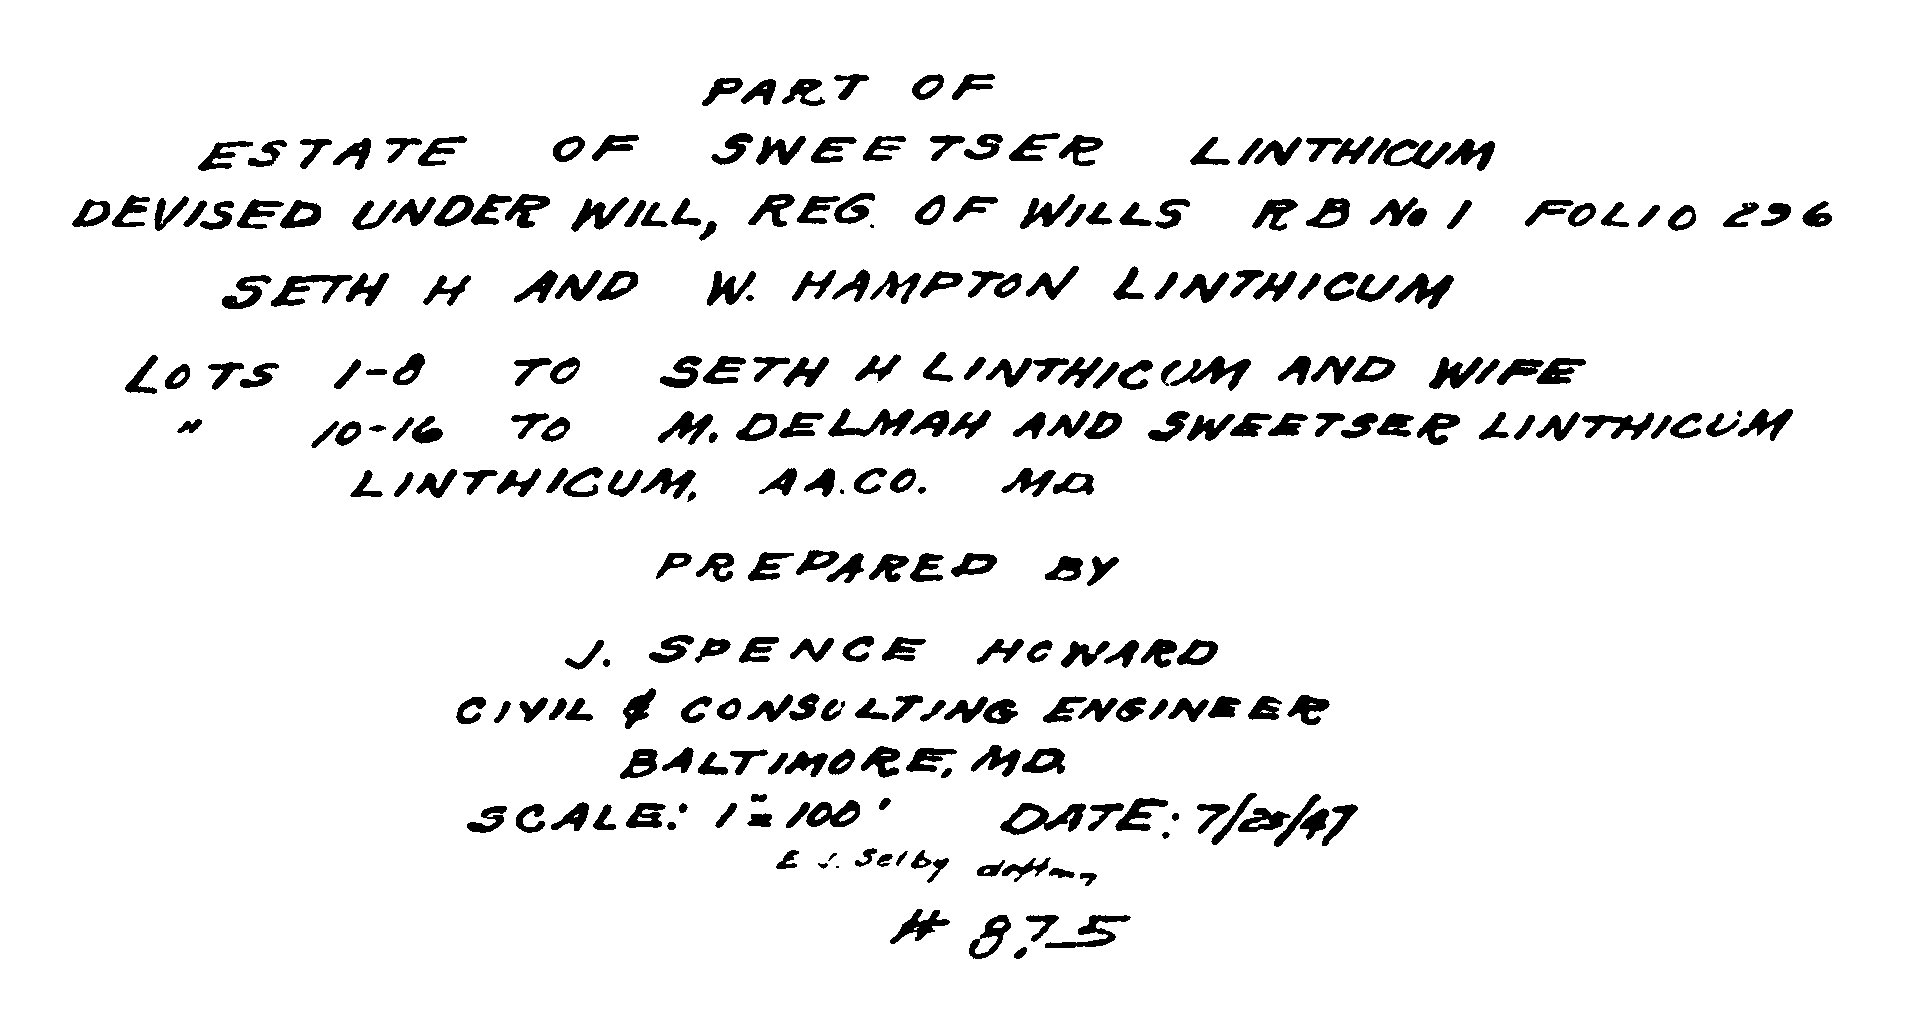 PART OF
ESTATE OF SWEETSER LINTHICUM
DEVISED UNDER WILL, REG. OF WILLS R B No 1 FOLIO 296
SETH H AND W. HAMPTON LINTHICUM
LOTS 1-8 TO SETH H LINTHICUM AND WIFE
" 10-16 TO M. DELMAH AND SWEETSER LINTHICUM
LINTHICUM, A A.CO. MD.
PREPARED BY
J. SPENCE HOWARD
CIVIL & CONSULTING ENGINEER
BALTIMORE, MD.
SCALE: 1"=100' DATE: 7/25/47
E J. Selby
# 87.5